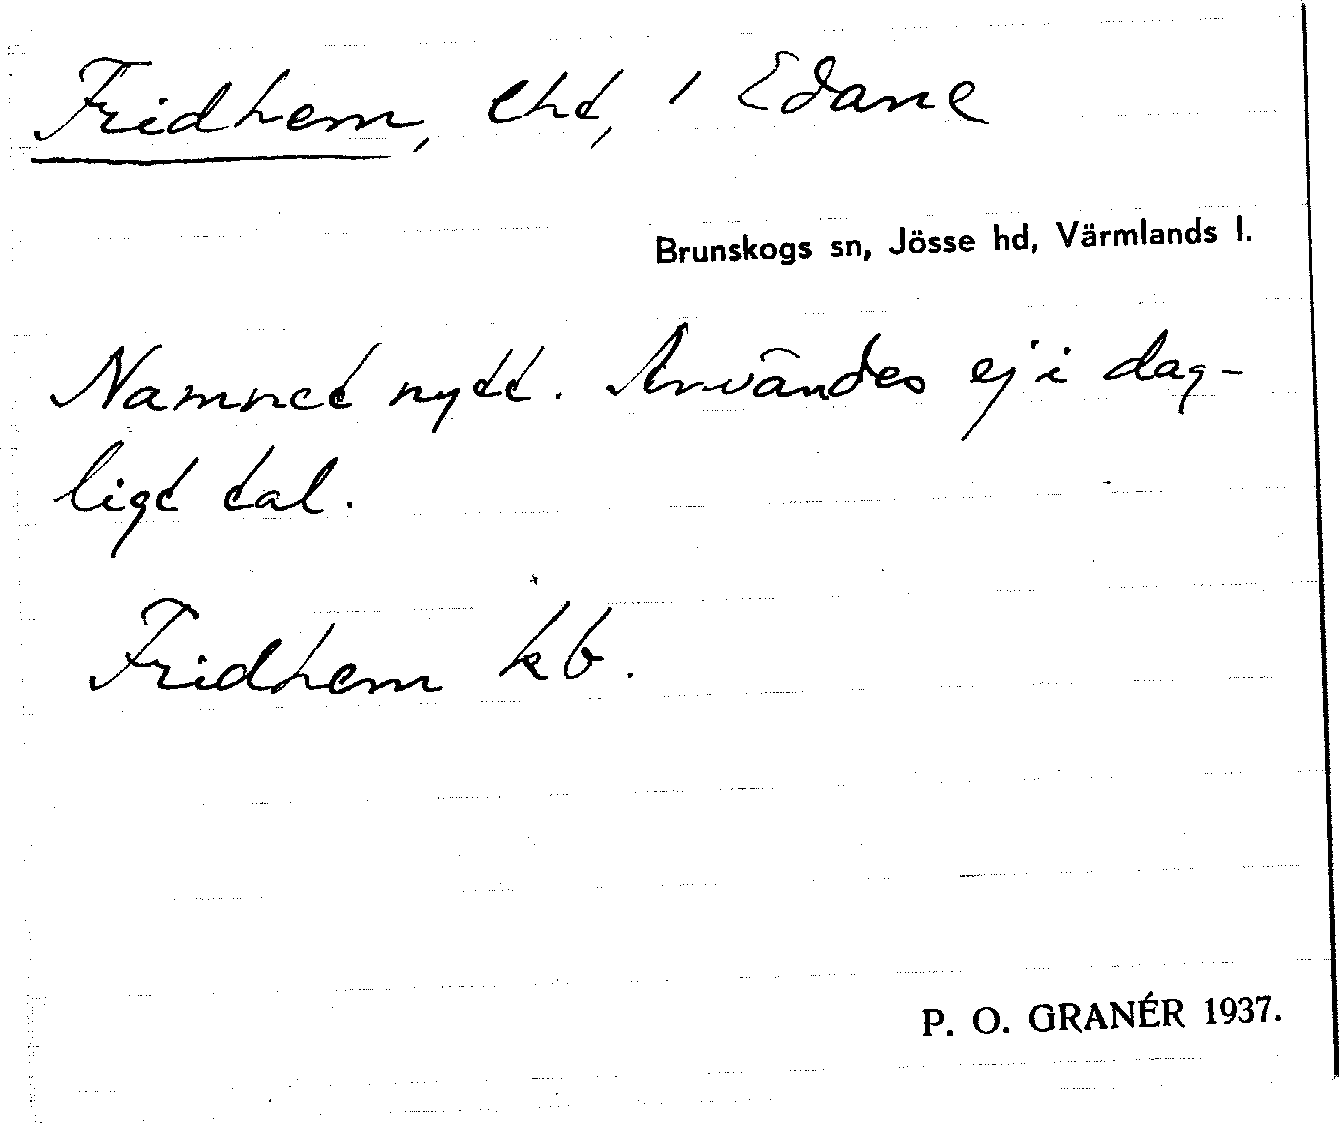 Fridhem, lht, 1 Edane
Brunskogs sn, Jösse hd, Värmlands l.
Namnet nytt. Användes ej i dag-
ligt tal.
Fridhem kb.
P. O. GRANÉR 1937.